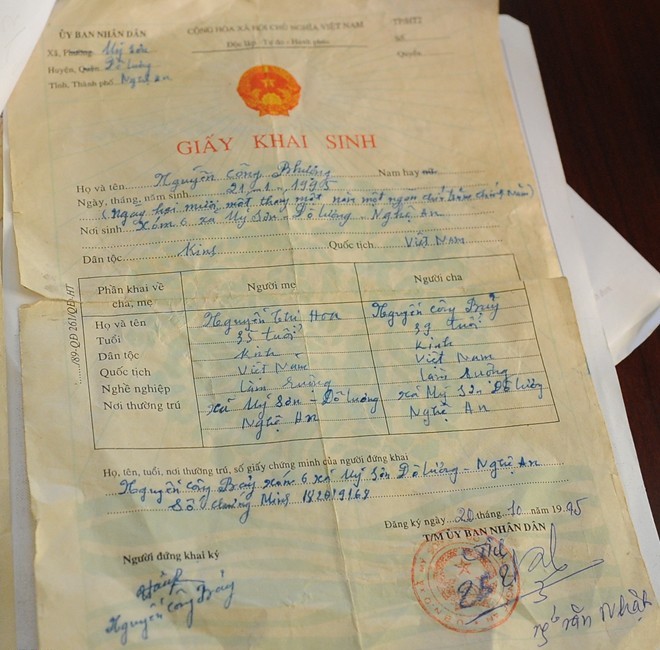 ỦY BAN NHÂN DÂN
Xã, Phường Mỹ Sơn
Huyện, Quận Đô Lương
Tỉnh, Thành phố Nghệ An
CỘNG HÒA XÃ HỘI CHỦ NGHĨA VIỆT NAM
Độc lập - Tự do - Hạnh phúc
TP/HT2
Số
Quyển
GIẤY KHAI SINH
Họ và tên Nguyễn Công Phượng Nam hay nữ
Ngày, tháng, năm sinh 21 - 1 - 1995
(Ngày hai mươi mốt tháng một năm một ngàn chín trăm chín năm)
Nơi sinh Xóm 6 xã Mỹ Sơn - Đô Lương - Nghệ An
Dân tộc Kinh Quốc tịch Việt Nam
Phần khai về cha, mẹ Người mẹ Người cha
Họ và tên Nguyễn Thị Hoa Nguyễn Công Bảy
Tuổi 35 tuổi 33 tuổi
Dân tộc Kinh Kinh
Quốc tịch Việt Nam Việt Nam
Nghề nghiệp Làm ruộng Làm ruộng
Nơi thường trú xã Mỹ Sơn - Đô Lương xã Mỹ Sơn Đô Lương
Nghệ An Nghệ An
/89-QĐ 261/QĐ-HT
Họ, tên, tuổi, nơi thường trú, số giấy chứng minh của người đứng khai
Nguyễn Công Bảy xóm 6 xã Mỹ Sơn Đô Lương - Nghệ An
Số chứng minh 182019168
Đăng ký ngày 20 tháng 10 năm 1995
T/M ỦY BAN NHÂN DÂN
Người đứng khai ký
Nguyễn Công Bảy
Văn Nhật